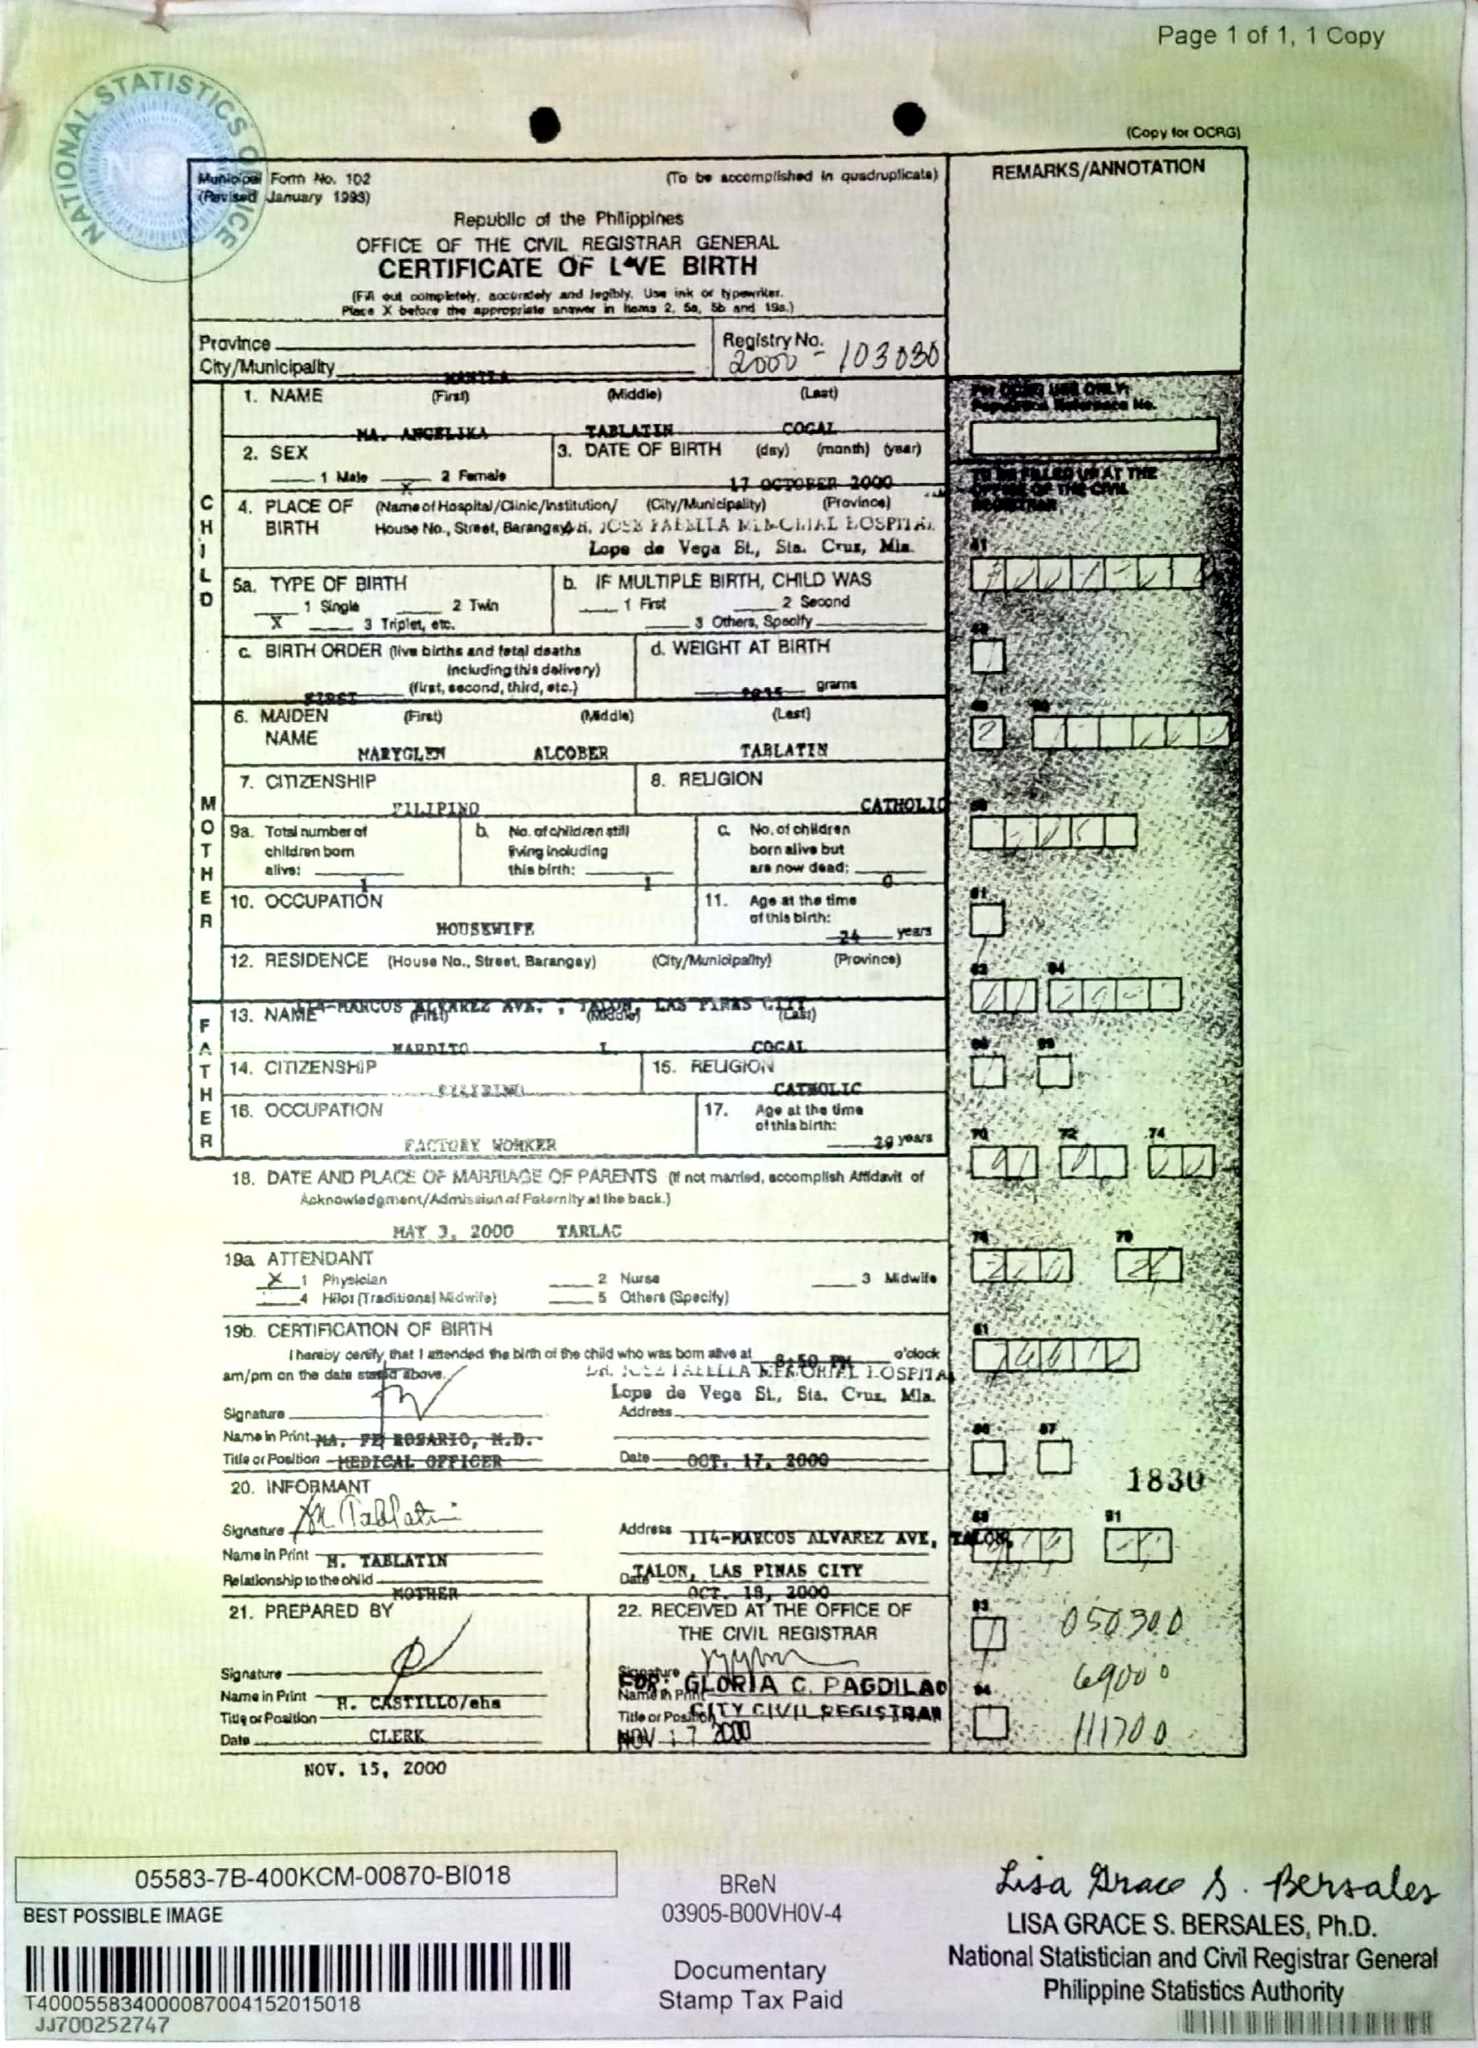 Page 1 of 1, 1 Copy
NATIONAL STATISTICS OFFICE
(Copy for OCRG)
Municipal Form No. 102
(Revised January 1993)
(To be accomplished in quadruplicate)
REMARKS/ANNOTATION
Republic of the Philippines
OFFICE OF THE CIVIL REGISTRAR GENERAL
CERTIFICATE OF LIVE BIRTH
(Fill out completely, accurately and legibly. Use ink or typewriter.
Place X before the appropriate answer in items 2, 5a, 5b and 19a.)
Province
City/Municipality MANILA
Registry No.
2000-103030
For OCRG USE ONLY:
Population Reference No.
TO BE FILLED UP AT THE
OFFICE OF THE CIVIL
REGISTRAR
CHILD
1. NAME (First) (Middle) (Last)
MA. ANGELIKA TABLATIN COGAL
2. SEX
1 Male X 2 Female
3. DATE OF BIRTH (day) (month) (year)
17 OCTOBER 2000
4. PLACE OF BIRTH (Name of Hospital/Clinic/Institution/ (City/Municipality) (Province)
House No., Street, Barangay) DR. JOSE FABELLA MEMORIAL HOSPITAL
Lope de Vega St., Sta. Cruz, Mla.
5a. TYPE OF BIRTH
X 1 Single 2 Twin
3 Triplet, etc.
b. IF MULTIPLE BIRTH, CHILD WAS
1 First 2 Second
3 Others, Specify
c. BIRTH ORDER (live births and fetal deaths
including this delivery)
(first, second, third, etc.)
FIRST
d. WEIGHT AT BIRTH
grams
MOTHER
6. MAIDEN NAME (First) (Middle) (Last)
MARYGLEN ALCOBER TABLATIN
7. CITIZENSHIP
FILIPINO
8. RELIGION
CATHOLIC
9a. Total number of
children born
alive: 1
b. No. of children still
living including
this birth: 1
c. No. of children
born alive but
are now dead: 0
10. OCCUPATION
HOUSEWIFE
11. Age at the time
of this birth:
24 years
12. RESIDENCE (House No., Street, Barangay) (City/Municipality) (Province)
114-MARCOS ALVAREZ AVE. , TALON, LAS PINAS CITY
FATHER
13. NAME (First) (Middle) (Last)
MARDITO L. COGAL
14. CITIZENSHIP
FILIPINO
15. RELIGION
CATHOLIC
16. OCCUPATION
FACTORY WORKER
17. Age at the time
of this birth:
29 years
18. DATE AND PLACE OF MARRIAGE OF PARENTS (If not married, accomplish Affidavit of
Acknowledgment/Admission of Paternity at the back.)
MAY 3, 2000 TARLAC
19a. ATTENDANT
X 1 Physician 2 Nurse 3 Midwife
4 Hilot (Traditional Midwife) 5 Others (Specify)
19b. CERTIFICATION OF BIRTH
I hereby certify that I attended the birth of the child who was born alive at 8:50 PM o'clock
am/pm on the date stated above.
DR. JOSE FABELLA MEMORIAL HOSPITAL
Lope de Vega St., Sta. Cruz, Mla.
Signature
Address
Name in Print MA. FE ROSARIO, M.D.
Title or Position MEDICAL OFFICER
Date OCT. 17, 2000
1830
20. INFORMANT
Signature M Tablatin
Address 114-MARCOS ALVAREZ AVE, TALON,
Name in Print M. TABLATIN
TALON, LAS PINAS CITY
Relationship to the child MOTHER
Date OCT. 18, 2000
21. PREPARED BY
22. RECEIVED AT THE OFFICE OF
THE CIVIL REGISTRAR
050300
Signature
Signature
Name in Print H. CASTILLO/ehs
FOR: GLORIA C. PAGDILAO
Name in Print
69000
Title or Position CLERK
Title or Position CITY CIVIL REGISTRAR
Date NOV. 15, 2000
NOV 17 2000
111700
05583-7B-400KCM-00870-BI018
BEST POSSIBLE IMAGE
T400055834000087004152015018
JJ700252747
BReN
03905-B00VH0V-4
Documentary
Stamp Tax Paid
Lisa Grace S. Bersales
LISA GRACE S. BERSALES, Ph.D.
National Statistician and Civil Registrar General
Philippine Statistics Authority